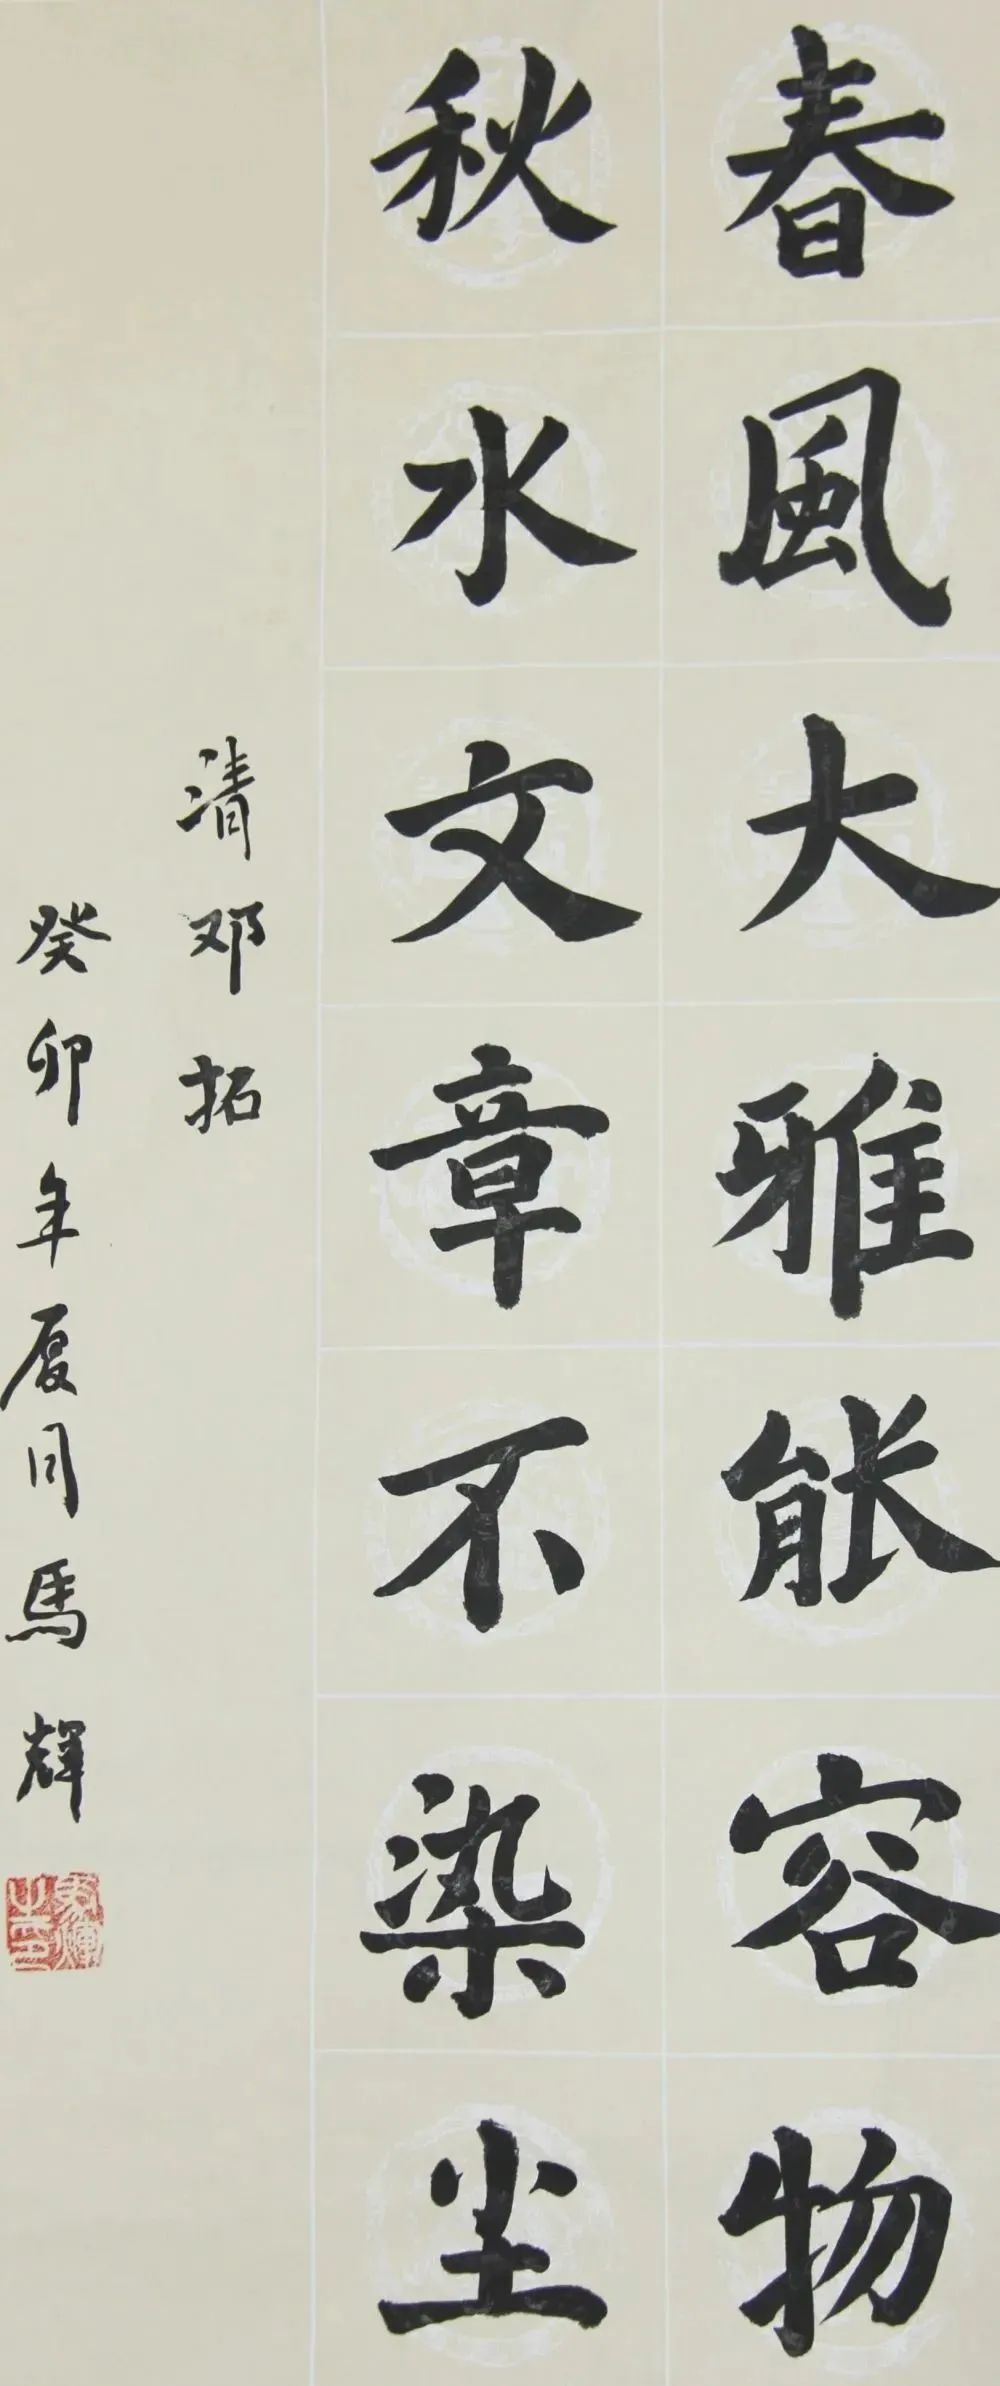 春風大雅能容物
秋水文章不染尘
清邓拓
癸卯年夏月馬輝